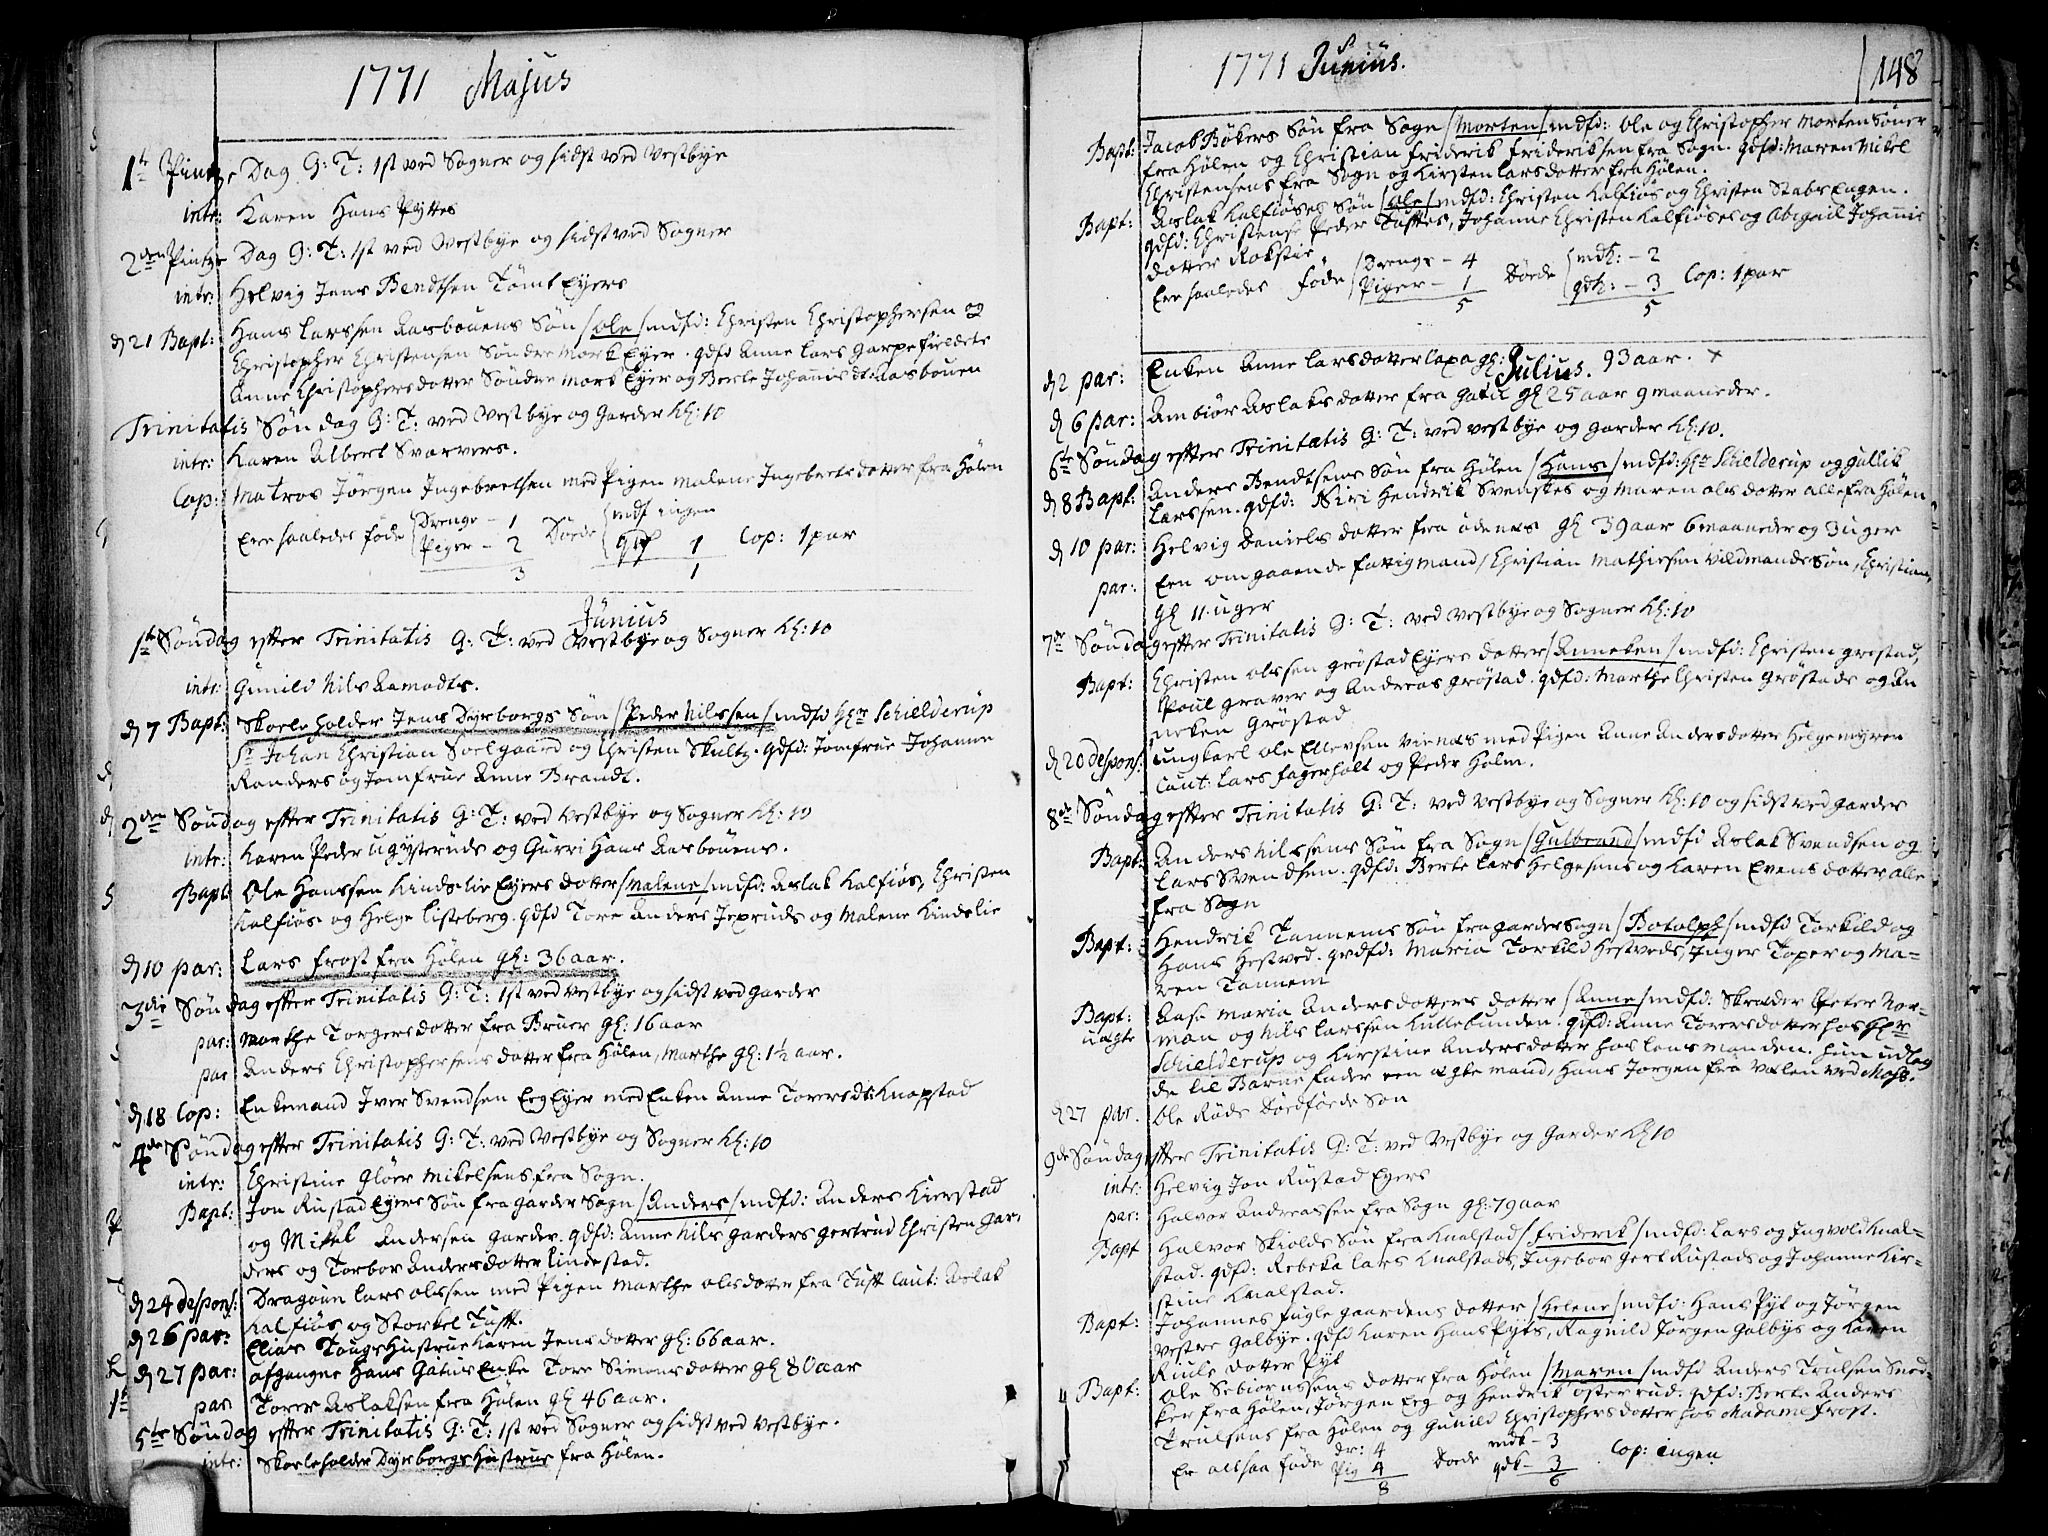 1771 Majus
1te Pintze Dag G: T: 1st ved Sogner og sidst ved Vestbye
intr: Karen Hans Pyttes
2den Pintze Dag G: T: 1st ved Vestbye og sidst ved Sogner
intr: Helvig Jens Bendtsen Tømt Eyers
d 21 Bapt: Hans Larssen Aasbouens Søn /Ole/ mdfd: Christen Christophersen og
Christopher Christensen Søndre Mork Eyer. qdfd Anne Lars Garpefieldets
Anne Christophersdotter Søndre Mork Eyer og Berte Johannis dt: Aasbouen
Trinitatis Søndag G: T: ved Vestbye og Garder Kl: 10
intr: Karen Albert Svarvers.
Cop: Matros Jørgen Ingebretsen med Pigen Malene Ingebretsdotter fra Hølen
Ere saaledesføde Drenge - 1 Døde mdf ingen
Piger - 2 qdf 1 Cop: 1 par
3 1
Junius
1te Søndag efter Trinitatis G: T: ved Vestbye og Sogner Kl: 10
intr: Gunild Nils Aamodts.
d 7 Bapt: Skoleholder Jens Dyrborgs Søn /Peder Nilssen/ mdfd Hr Schielderup
Sr Johan Christian Soelgaard og Christen Skultz. qdfd: Jomfrue Johanne
Randers og Jomfrue Anne Brandt.
2den Søndag efter Trinitatis G: T: ved Vestbye og Sogner Kl: 10
intr: Karen Peder Ugysteruds og Gurri Hans Aasbouens.
Bapt Ole Hanssen Kindslie Eyers dotter /Malene/ mdfd: Aslak Kalfiøs, Christen
Kalfiøs og Helge Listeberg. qdfd Tore Anders Jepruds og Malene Kindslie
d 10 par: Lars Frost fra Hølen gl: 36 aar.
3die Søndag efter Trinitatis G: T: 1st ved Vestbye og sidst ved Garder
par: Marthe Torgersdotter fra Bruer gl: 16 aar
par Anders Christophersens dotter fra Hølen, Marthe gl: 1½ aar.
d 18 Cop: Enkemand Iver Svendsen Eeg Eyer med Enken Anne Torersdt: Knapstad
4de Søndag efter Trinitatis G: T: ved Vestbye og Sogner Kl: 10
intr: Christine Gløer Mikelsens fra Sogn.
Bapt: Jon Rustad Eyers Søn fra Garder Sogn /Anders/ mdfd: Anders Kierstad
og Mikel Andersen Garder. qdfd: Anne Nils Garders Gertrud Christen Gar-
ders og Torbor Andersdotter Lindestad.
d 24 despons: Dragoun Lars Olssen med Pigen Marthe Olsdotter fra Tuft Caut: Aslak
Kalfiøs og Storkel Tuft.
d 26 par: Elias Tougs Hustrue Karen Jensdotter gl: 66 aar.
d 27 par: afgangne Hans Gatues Enke Tore Simonsdotter gl 80 aar
par Torer Aslaksen fra Hølen gl 46 aar.
5te Søndag efter Trinitatis G: T: 1st ved Sogner og sidst ved Vestbye.
intr: Skoleholder Dyrborgs Hustrue fra Hølen.
1771 Junius.
148
Bapt: Jacob Bøkers Søn fra Sogn /Morten/ mdfd: Ole og Christopher Morten Søner
fra Hølen og Christian Friderik Frideriksen fra Sogn. qdfd: Maren Mikel
Christensens fra Sogn og Kirsten Larsdotter fra Hølen.
Bapt: Aslak Kalfiøses Søn /Ole/ mdfd: Christen Kalfiøs og Christen Stabs Engen.
qdfd: Christense Peder Tuftes, Johanne Christen Kalfiøses og Abigail Johannis
dotter Rokstie.
Ere saaledes føde Drenge - 4 Døde mdk: - 2
Piger - 1 qdk: - 3 Cop: 1 par
5 5
Julius.
d 2 par: Enken Anne Larsdotter Laxa gl: 93 aar. x
d 6 par: Anbiør Aslaksdotter fra Gatu gl 25 aar 9 maaneder.
6te Søndag efter Trinitatis G: T: ved Vestbye og Garder Kl: 10.
d 8 Bapt: Anders Bendtsens Søn fra Hølen /Hans/ mdfd: Hr Schielderup og Gullik
Larssen. qdfd: Siri Hendrik Svenskes og Maren Olsdotter alle fra Hølen
d 10 par: Helvig Danielsdotter fra Ødenes gl 39 aar 6 maaneder og 3 uger
par: Een omgaaende fattig mand, Christian Mathiesen Vildmands Søn, Christian,
gl 11. uger
7de Søndag efter Trinitatis G: T: ved Vestbye og Sogner Kl: 10
Bapt: Christen Olssen Grøstad Eyers dotter /Anneken/ mdfd: Christen Grøstad,
Poul Graver og Andreas Grøstad. qdfd: Marthe Christen Grøstads og An
neken Grøstad
d 20 despons: ungkarl Ole Ellevsen Vienes med Pigen Anne Andersdotter Helgemyren
Caut: Lars Fagerholt og Peder Holm.
8de Søndag efter Trinitatis G: T: ved Vestbye og Sogner Kl: 10 og sidst ved Garder
Bapt: Anders Nilssens Søn fra Sogn /Gulbrand/ mdfd Aslak Svendsen og
Lars Svendsen. qdfd: Berte Lars Helgesens og Karen Evensdotter alle
fra Sogn
Bapt: Hendrik Tannems Søn fra Garder Sogn /Botolph/ mdfd Torkild og
Hans Hestved. qvdfd: Maria Torkild Hestveds, Inger Toper og Ma-
ren Tannem
Bapt: Aase Maria Andersdotters dotter /Anne/ mdfd: Skræder Peter Nor-
uægte man og Nils Larssen Kullebunden. qdfd: Anne Torersdotter hos Hr
Schielderup og Kirstine Andersdotter hos Lensmanden. hun udlag
de til Barnefader een ægte mand, Hans Jørgen fra Vælen ved Moss.
d 27 par. Ole Røds Dødfødde Søn
9de Søndag efter Trinitatis G: T: ved Vestbye og Garder Kl 10
intr: Helvig Jon Rustad Eyers
par: Halvor Andreassen fra Sogn gl: 79 aar
Bapt Halvor Skiolds Søn fra Knalstad /Friderik/ mdfd: Lars og Ingvold Knal-
stad. qdfd: Rebeka Lars Knalstads, Ingebor Gert Rustads og Johanne Kir-
stine Knalstad.
Bapt: Johannes Fuglegaardens dotter /Helene/ mdfd: Hans Pyt og Jørgen
Vestre Galbye. qdfd Karen Hans Pyts, Ragnild Jørgen Galbys og Karen
Riuls dotter Pyt
Bapt: Ole Sebiørnssens dotter fra Hølen /Maren/ mdfd Anders Trulsen Sned-
ker fra Hølen, Jørgen Eeg og Hendrik Østerrud. qdfd: Berte Anders
Trulsens fra Hølen og Gunild Christophersdotter hos Madame Frost.
Er altsaa føde dr: 4 Døde mdk - 3 Cop: ingen
Pig 4 qdk - 3
8 6